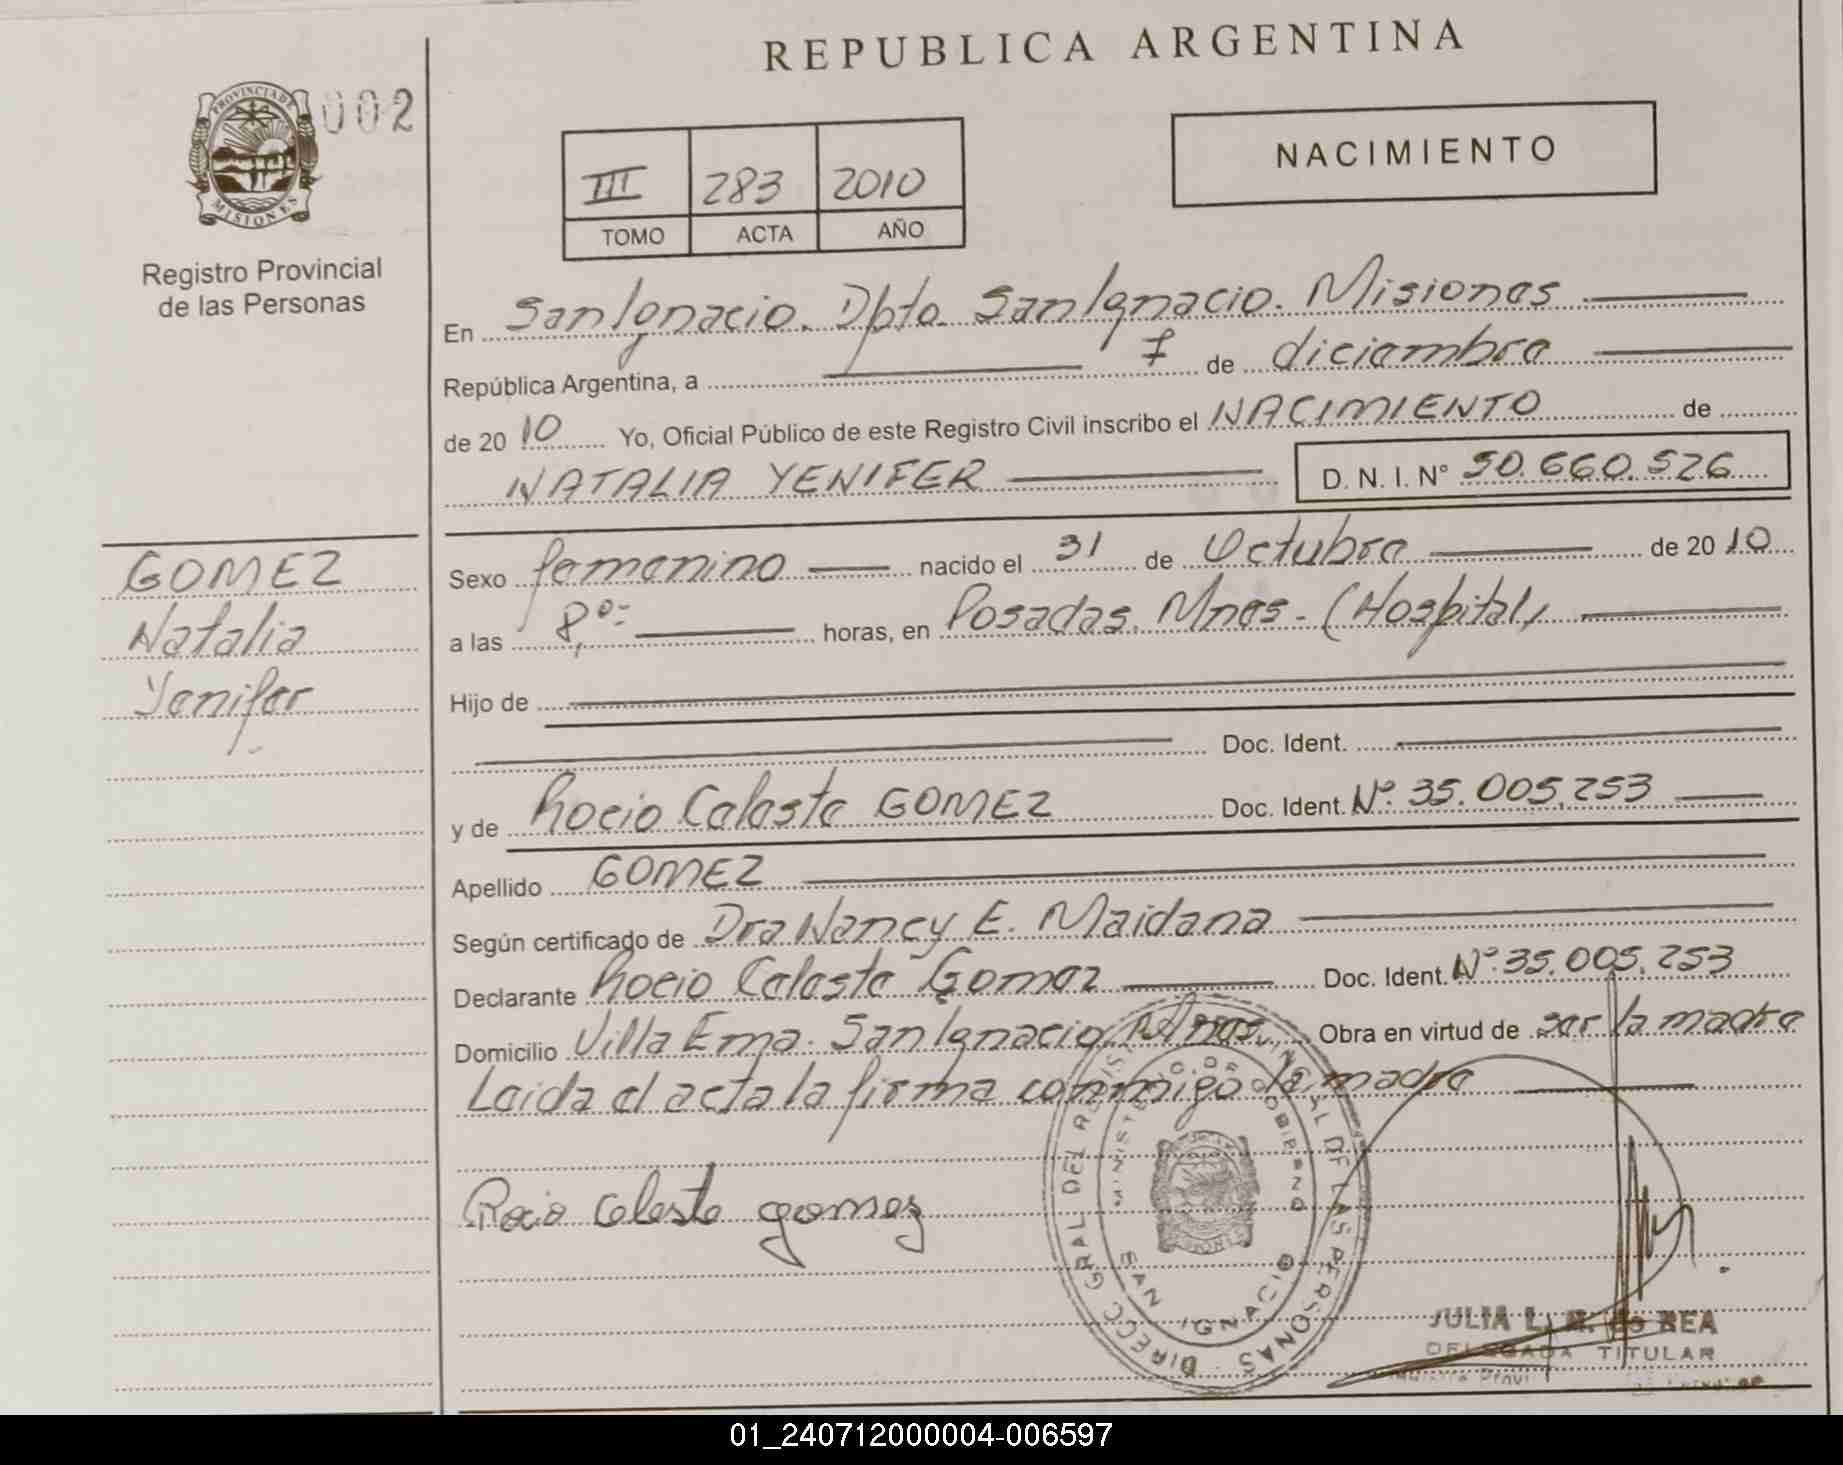 REPUBLICA ARGENTINA
PROVINCIA DE
MISIONES
002
Registro Provincial
de las Personas
III 283 2010
TOMO ACTA AÑO
NACIMIENTO
En San Ignacio. Dpto. San Ignacio. Misiones
República Argentina, a 7 de diciembre
de 20 10 Yo, Oficial Público de este Registro Civil inscribo el NACIMIENTO de
NATALIA YENIFER D. N. I. N° 50.660.526
GOMEZ
Natalia
Yenifer
Sexo femenino nacido el 31 de Octubre de 20 10
a las 8,00 horas, en Posadas. Mnes - (Hospital)
Hijo de
Doc. Ident.
y de Rocio Celeste GOMEZ Doc. Ident. Nº. 35.005.253
Apellido GOMEZ
Según certificado de Dra Nancy E. Maidana
Declarante Rocio Celeste Gomez Doc. Ident. Nº. 35.005.253
Domicilio Villa Ema. San Ignacio Mnes. Obra en virtud de ser la madre
Leida el acta la firma conmigo la madre
Rocio Celeste gomez
DIRECC GRAL DEL REGIST. PROVINCIAL DE LAS PERSONAS
MINISTERIO DE GOBIERNO
SAN IGNACIO
JULIA L. R. de REA
DELEGADA TITULAR
01_240712000004-006597